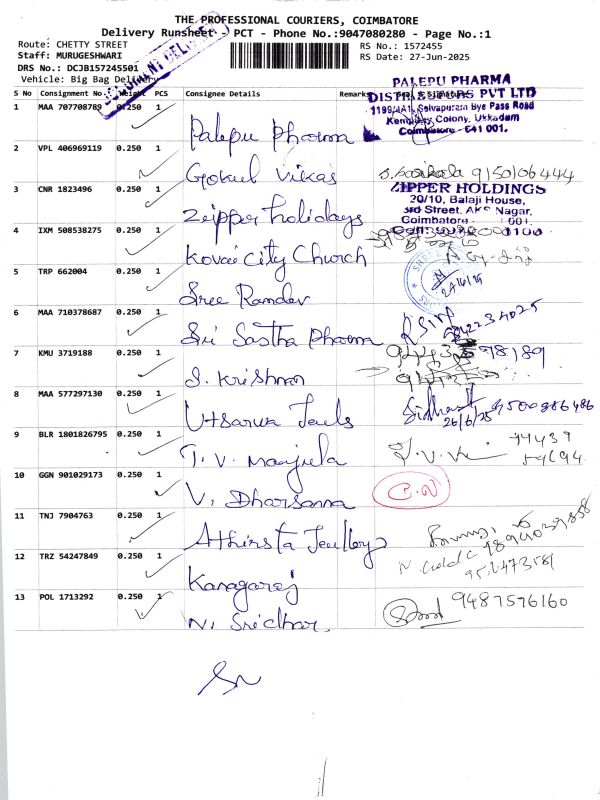 THE PROFESSIONAL COURIERS, COIMBATORE
Delivery Runsheet - PCT - Phone No.:9047080280 - Page No.:1
Route: CHETTY STREET
Staff: MURUGESHWARI
DRS No.: DCJB157245501
Vehicle: Big Bag Delivery
RS No.: 1572455
RS Date: 27-Jun-2025
S No Consignment No. Weight PCS Consignee Details Remarks
PALEPU PHARMA
DISTRIBUTORS PVT LTD
1199/1A1, Selvapuram Bye Pass Road
Colony, Ukkadam
Coimbatore - 641 001.
1 MAA 707708789 0.250 1 Palepu Pharma
2 VPL 406969119 0.250 1 Gokul Vikas 9150106444
ZIPPER HOLDINGS
20/10, Balaji House,
3rd Street, AKS Nagar,
Coimbatore - 001.
3 CNR 1823496 0.250 1 Zipper holidays
4 IXM 508538275 0.250 1 Kovai City Church
5 TRP 662004 0.250 1 Sree Ramdev
6 MAA 710378687 0.250 1 Sri Sastha Pharma
7 KMU 3719188 0.250 1 S. Krishnan
8 MAA 577297130 0.250 1 Utsarva Jewls Sidhart 9500986486
26/6/25
9 BLR 1801826795 0.250 1 T. V. Manjula
10 GGN 901029173 0.250 1 V. Dharsanna
11 TNJ 7904763 0.250 1
12 TRZ 54247849 0.250 1 Kanagaraj
13 POL 1713292 0.250 1 N. Sridhar 9487576160